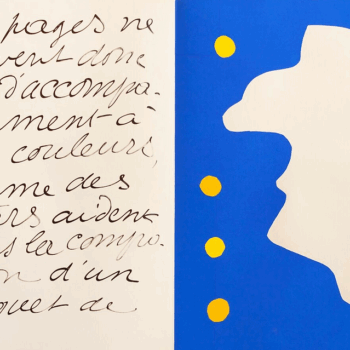 pages ne
vent donc
d'accompa-
ment à
couleurs,
me des
ers aident
s la compo-
n d'un
quet de